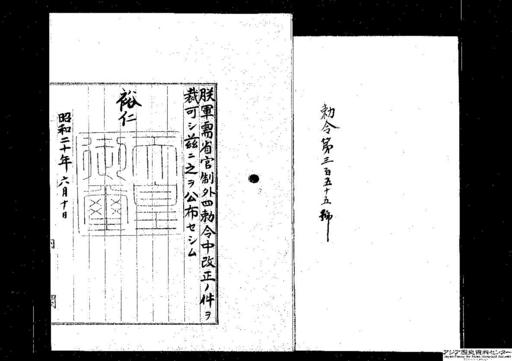 勅令第三百五十五號
朕軍需省官制外四勅令中改正ノ件ヲ
裁可シ茲ニ之ヲ公布セシム
裕仁
天皇御璽
昭和二十年六月十日
内閣
アジア歴史資料センター